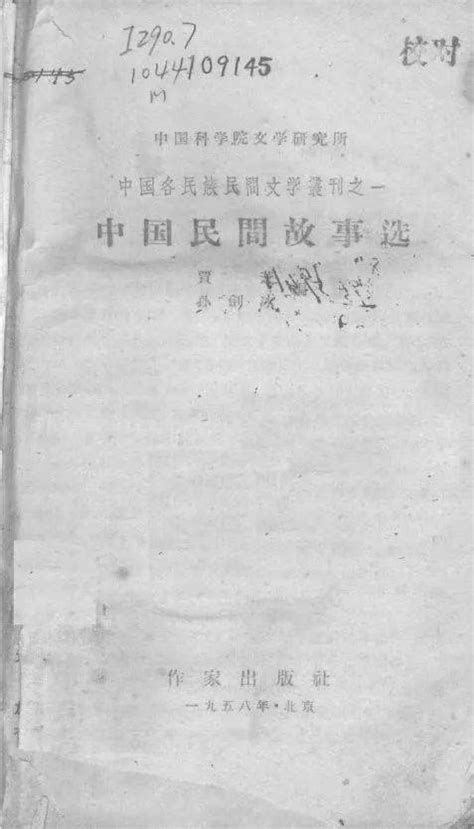 I290.7
校对
1044109145
M
中国科学院文学研究所
中国各民族民間文学叢刊之一
中国民間故事选
賈
孙剑冰
作家出版社
一九五八年·北京